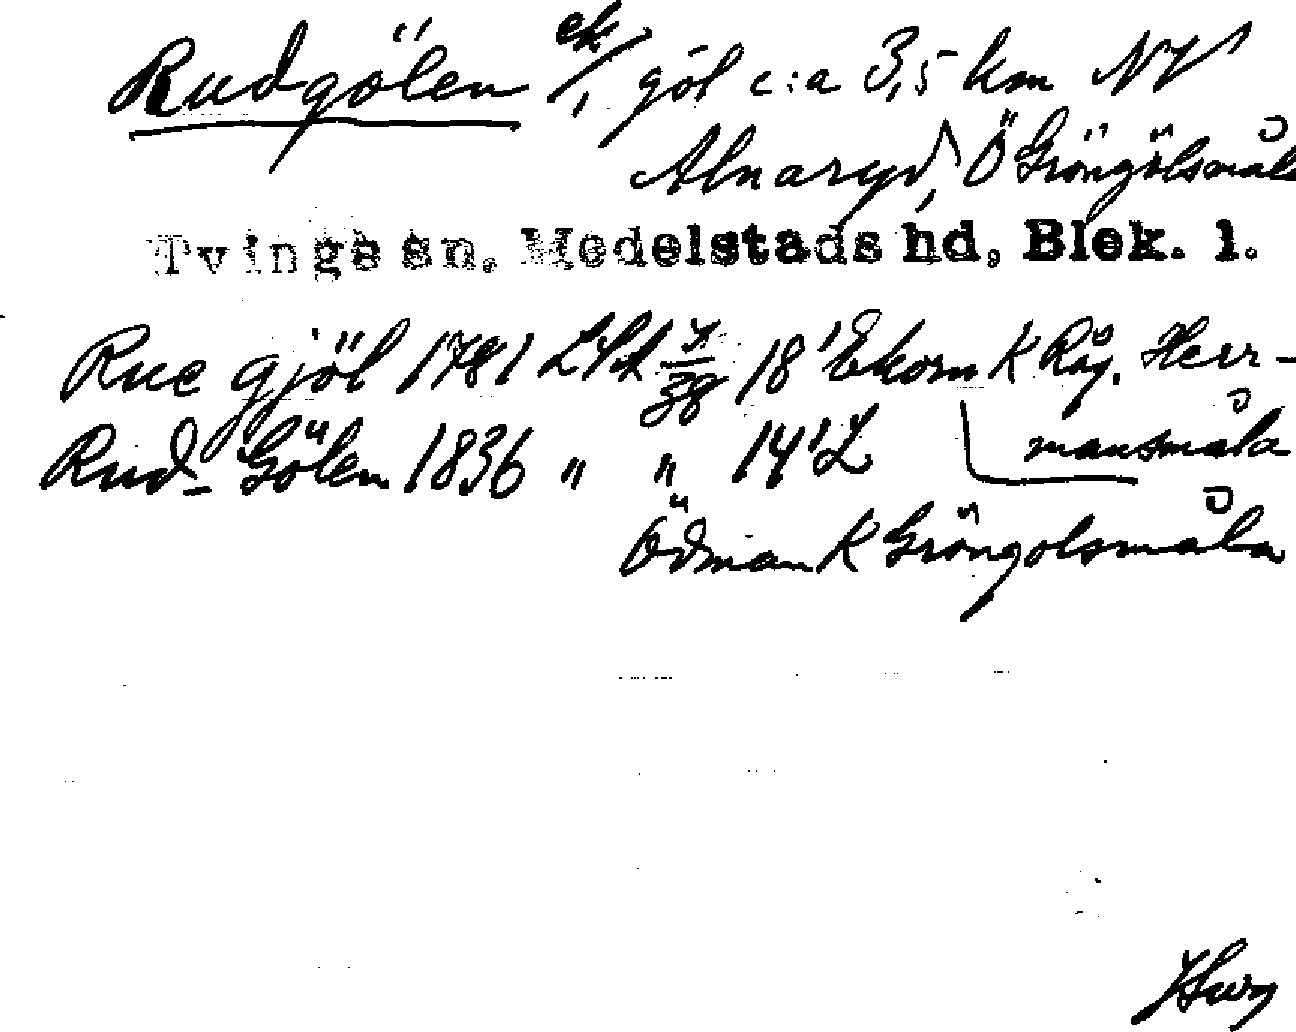 Rudgölen ek/, göl c:a 3,5 km NV
Alnaryd, Ö Gröngölsmåla
Tvinge sn, Medelstads hd, Blek. l.
Rue gjöl 1781 LSA 18' Ekorn K Råg. Herr-
mansmåla
Rud-Gölen 1836 " " 14' L
Ödman K Gröngolsmåla